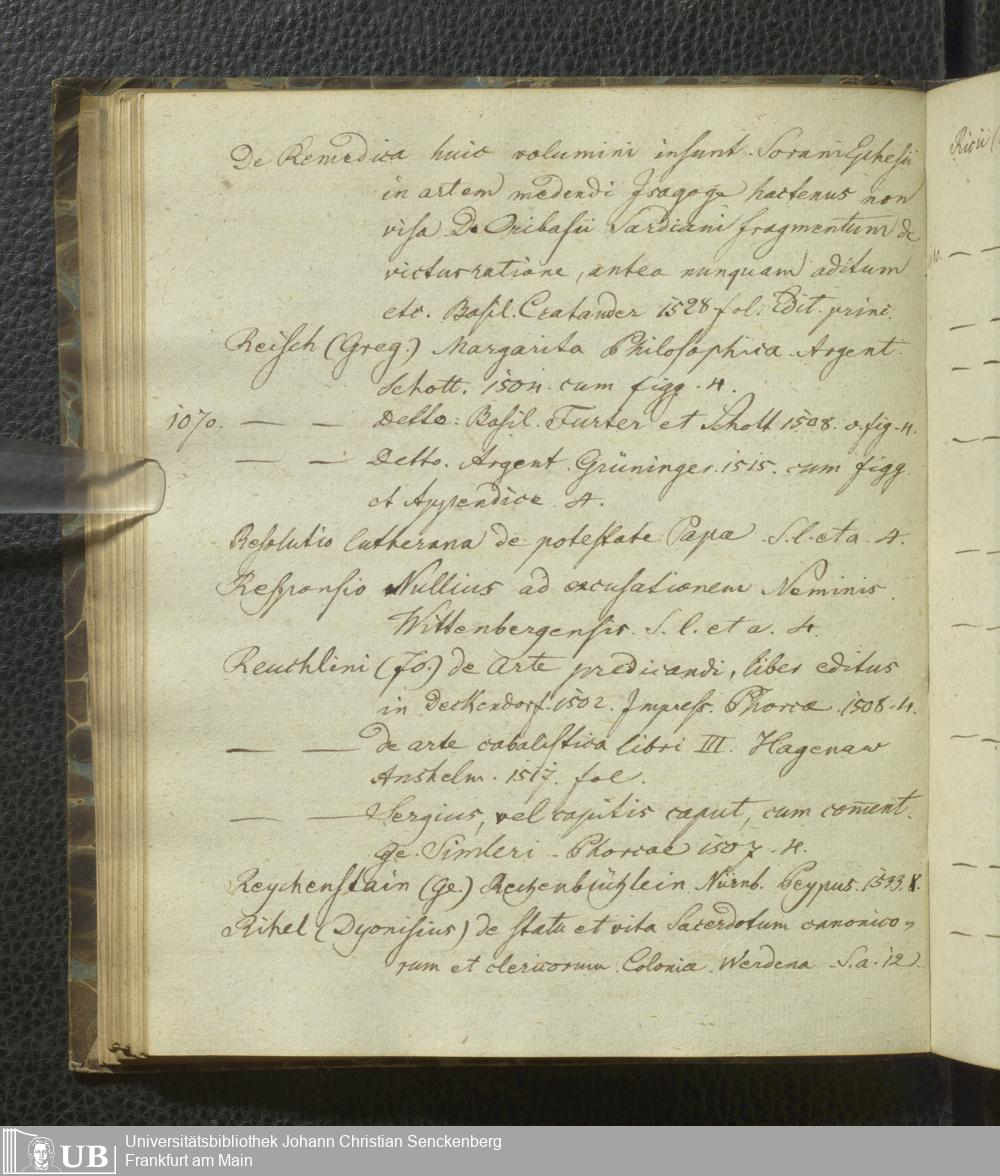 De Remedica huic volumini insunt Sorani Ephesii
in artem medendi Isagoge hactenus non
visa De Oribasii Sardiani fragmentum de
victus ratione, antea nunquam aditum
etc. Basil. Cratander 1528 fol. Edit. princ.
Reisch (Greg.) Margarita Philosophica. Argent.
Schott. 1504. cum figg. 4.
1070. — — Detto: Basil. Furter et Schott 1508. c. fig. 4.
— — Detto. Argent. Grüninger. 1515. cum figg.
et Appendice 4.
Resolutio lutherana de potestate Papa S. l. et a. 4.
Responsio Nullius ad excusationem Neminis.
Wittenbergensis. S. l. et a. 4.
Reuchlini (Jo.) de Arte predicandi, liber editus
in Deckendorf. 1502. Impress. Phorcæ. 1508. 4.
— — de arte cabalistica libri III. Hagenaw
Anshelm. 1517. fol.
— — Sergius, vel capitis caput, cum com̄ent.
Ge. Simleri. Phorcae 1507. 4.
Reychenstain (Ge.) Rechenbüchlein. Nürnb. Peypus. 1533. 8.
Rihel (Dyonisius) de statu et vita Sacerdotum canonico„
rum et clericorum. Coloniæ. Werdena. S. a. 12.
Ricii (
UB
Universitätsbibliothek Johann Christian Senckenberg
Frankfurt am Main